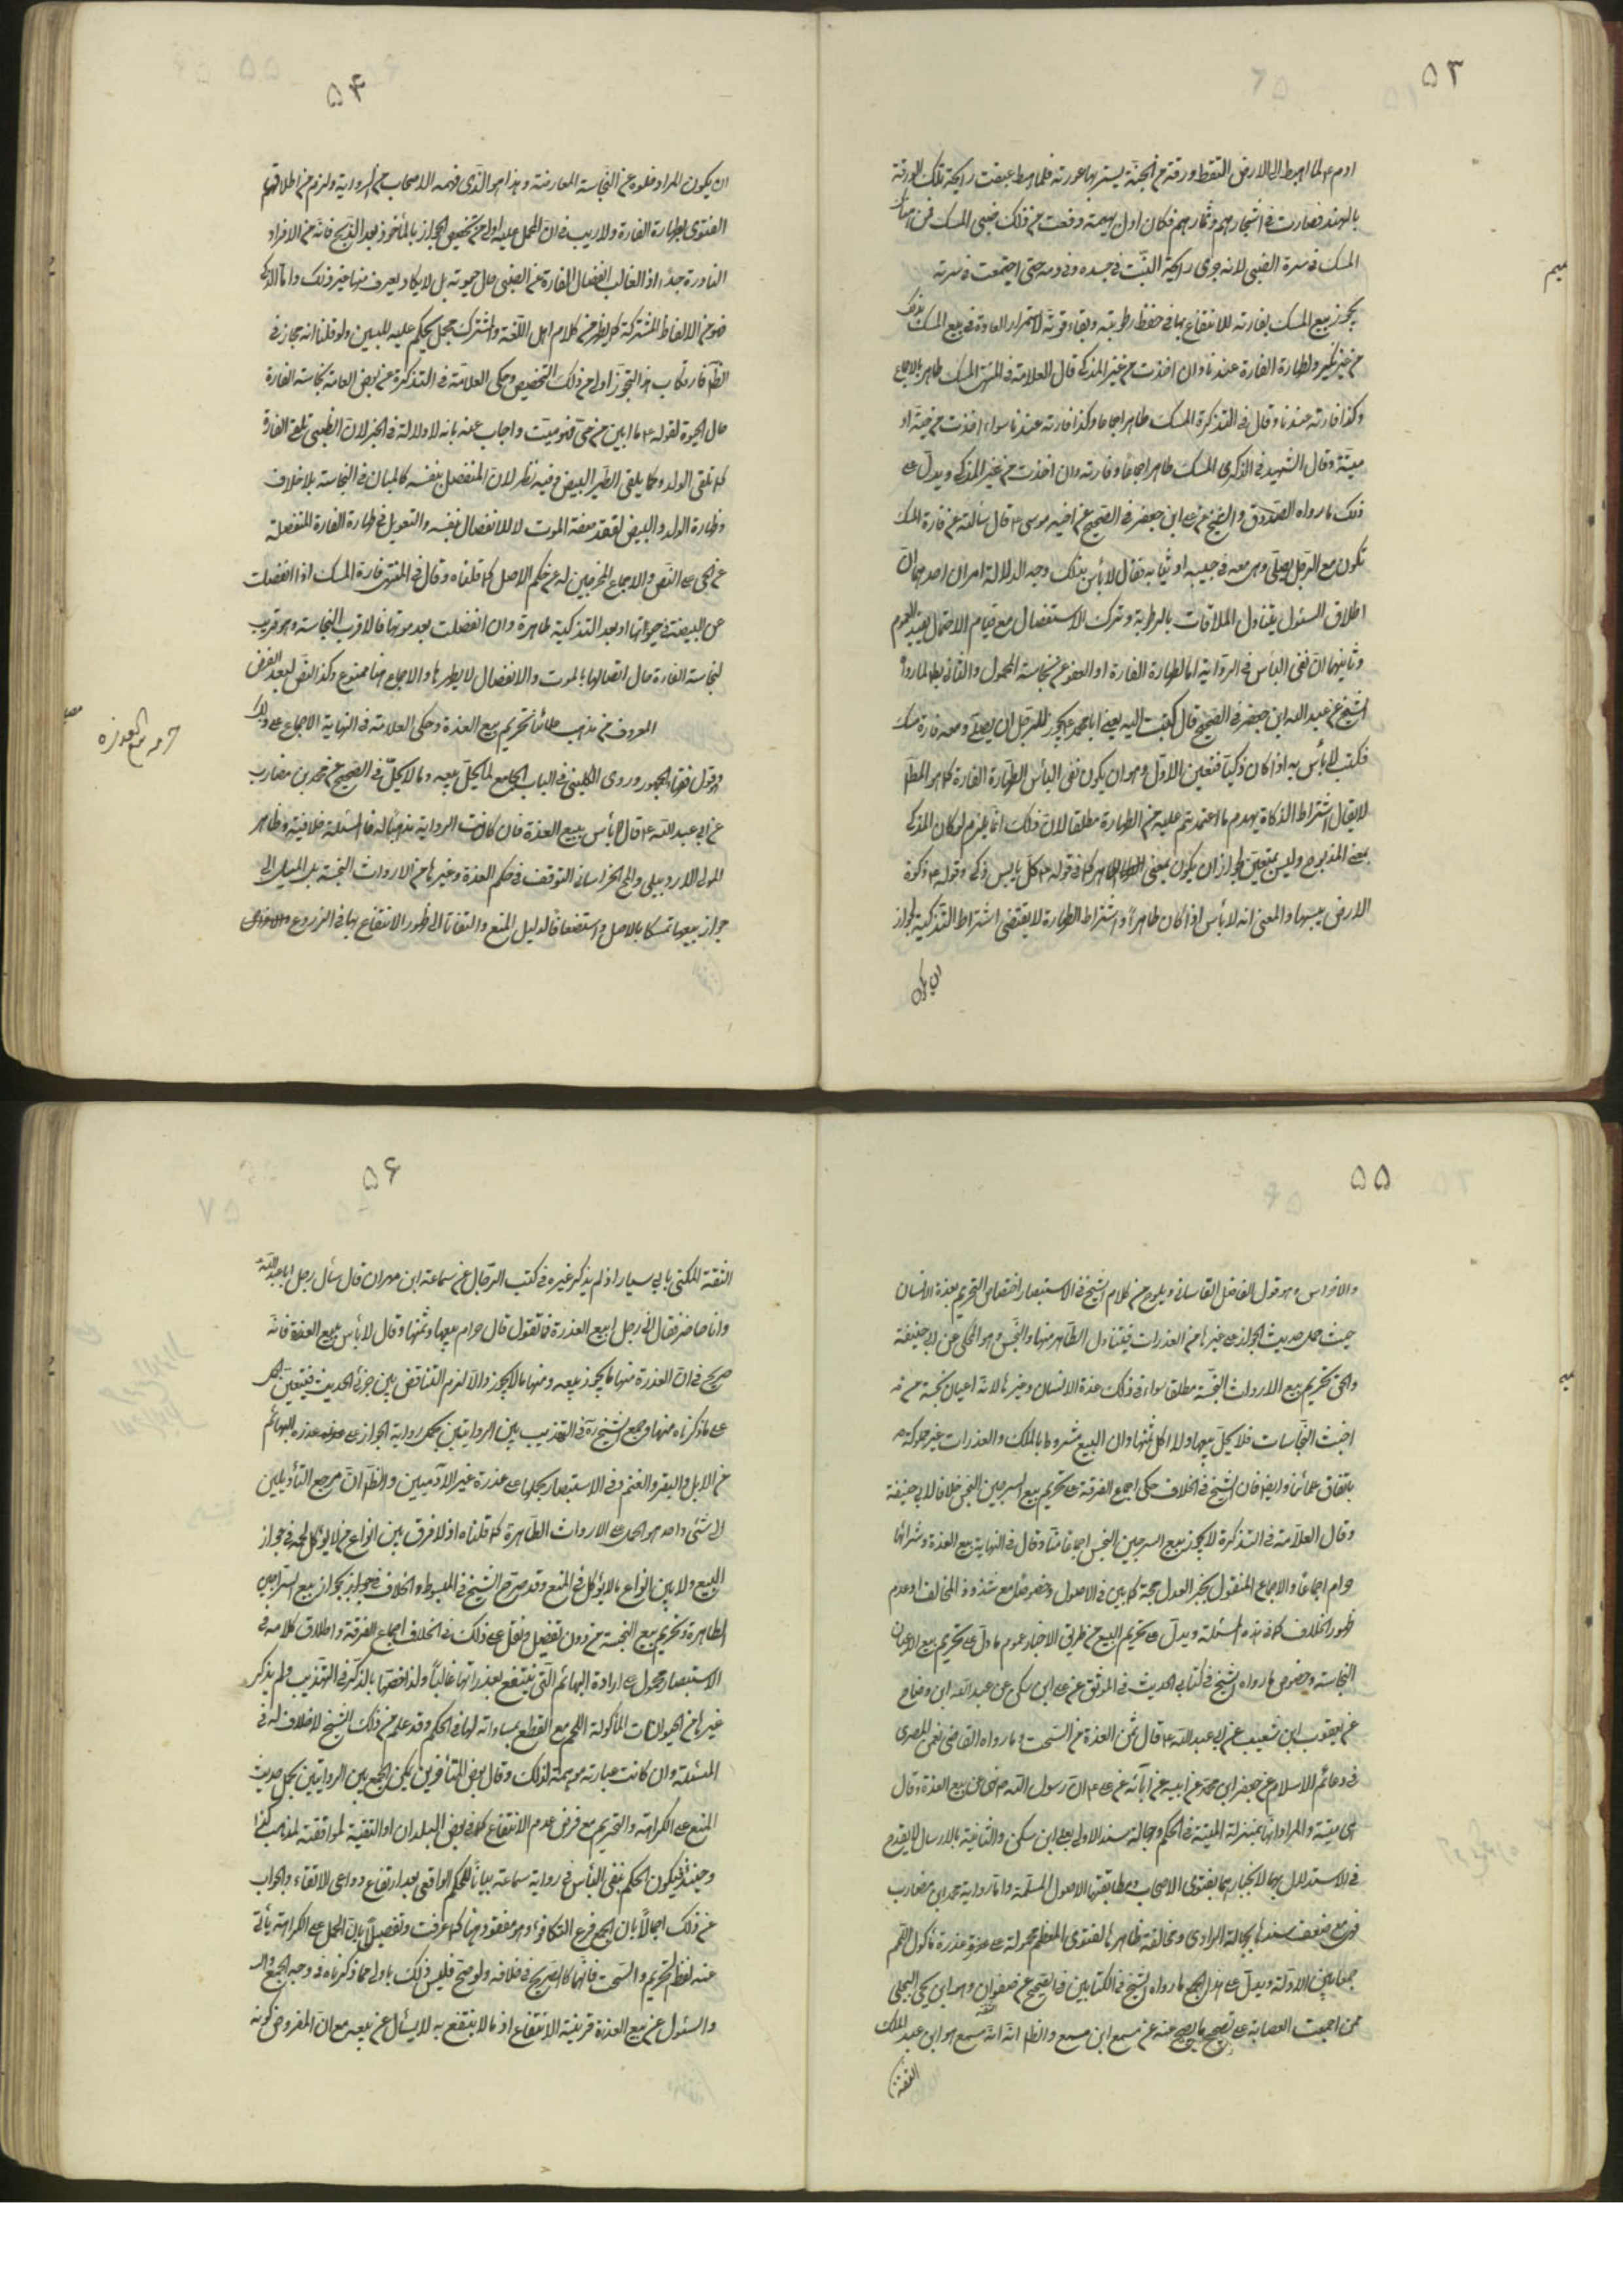 ۵۳
ادم ع لما اهبط الى الارض التقط ورقة من الجنة يستر بها عورته فلما هبط عبقت رايحة تلك الورقة
بالهند فصارت في اشجارهم وثمارهم فكان اول بهيمة وقعت من ذلك ظبى المسك فمن هناك
المسك في سرة الظبى لانه جرى رايحة النبت في جسده وفي دمه حتى اجتمعت في سرته
يجوز بيع المسك بفارته للانتفاع بها في حفظ رطوبته وبقاء قوته لاستمرار العادة في بيع المسك بذلك
من غير نكير ولطهارة الفارة عندنا وان اخذت من غير المذكى قال العلامة في المنتهى المسك طاهر بالاجماع
وكذا فارته عندنا وقال في التذكرة المسك طاهر اجماعا وكذا فارته عندنا سواء اخذت من حية او
ميتة وقال الشهيد في الذكرى المسك طاهر اجماعا وفارته وان اخذت من غير المذكى ويدل على
ذلك ما رواه الصدوق والشيخ عن علي ابن جعفر في الصحيح عن اخيه موسى ع قال سالته عن فارة المسك
تكون مع الرجل يصلي وهي معه في جيبه او ثيابه فقال لا بأس بذلك وجه الدلالة امران احدهما ان
اطلاق السئول يتناول الملاقات بالرطوبة وترك الاستفصال مع قيام الاحتمال يفيد العموم
وثانيهما ان نفى البأس في الرواية اما لطهارة الفارة او العفو عن نجاسة المحمول والثاني بط لما رواه
الشيخ عن عبد الله ابن جعفر في الصحيح قال كتبت اليه يعني ابا محمد ع يجوز للرجل ان يصلي ومعه فارة مسك
فكتب لا بأس به اذا كان ذكيا فتعين الاول وهو ان يكون نفى البأس لطهارة الفارة كما هو المط
لا يقال اشتراط الذكاة يهدم ما اعتمدتم عليه من الطهارة مطلقا لان ذلك انما يلزم لو كان المذكى
بمعنى المذبوح وليس بمتعين لجواز ان يكون بمعنى الطاهر كما في قوله ع كل يابس ذكى وقوله ع ذكوة
الارض يبسها والمعنى انه لا بأس اذا كان طاهرا واشتراط الطهارة لا يقتضى اشتراط التذكية لجواز
ان يكون
۵۴
ان يكون المراد خلوه عن النجاسة العارضة وهذا هو الذى فهمه الاصحاب من الرواية ولزم من اطلاقهم
الفتوى بطهارة الفارة ولا ريب في ان الحمل عليه اولى من تخصيص الجواز بالمأخوذ بعد الذبح فانه من الافراد
النادرة جدا اذ الغالب انفصال الفارة عن الظبى حال حيوته بل لا يكاد يعرف منها غير ذلك واما الذكى
فهو من الالفاظ المشتركة كما يظهر من كلام اهل اللغة والمشترك مجمل يحكم عليه المبين ولو قلنا انه مجاز في
الطاهر فارتكاب هذا التجوز اولى من ذلك التخصيص وحكى العلامة في التذكرة عن بعض العامة نجاسة الفارة
حال الحيوة لقوله ع ما ابين من حى فهو ميت واجاب عنه بانه لا دلالة في الخبر لان الظبى تلقى الفارة
كما تلقى الولد وكما يلقى الطير البيض وفيه نظر لان المنفصل بنفسه كالمبان في النجاسة بلا خلاف
وطهارة الولد والبيض لفقد صفة الموت لا للانفصال بنفسه والتعويل في طهارة الفارة المنفصلة
عن الحى على النص والاجماع المخرجين له عن حكم الاصل كما قلناه وقال في المنتهى فارة المسك اذا انفصلت
عن الظبية في حيوتها او بعد التذكية طاهرة وان انفصلت بعد موتها فالاقرب النجاسة وهو قريب
لنجاسة الفارة حال اتصالها بالموت والانفصال لا يطهرها والاجماع هنا ممنوع وكذا النص لبعد الفرض
المعروف من مذهب علمائنا تحريم بيع العذرة وحكى العلامة في النهاية الاجماع على ذلك
حرمه بيع العذره
وهو قول فقهاء الجمهور وروى الكليني في الباب الجامع لما يحل بيعه وما لا يحل في الصحيح عن محمد بن مضارب
عن ابي عبد الله ع قال لا بأس ببيع العذرة فان كانت الرواية مذهبا له فالمسئلة خلافية وظاهر
المولى الاردبيلى والمح الخراسانى التوقف في حكم العذرة وغيرها من الارواث النجسة بل الميل الى
جواز بيعها تمسكا بالاصل واستضعافا لدليل المنع والتفاتا الى ظهور الانتفاع بها في الزروع
۵۵
والافراس وهو قول الفاضل القاسانى ويلوح من كلام الشيخ في الاستبصار اختصاص التحريم بعذرة الانسان
حيث حمل حديث الجواز على غيرها من العذرات فيتناول الطاهر منها والنجس وهو المحكى عن ابي حنيفة
والحق تحريم بيع الارواث النجسة مطلقا سواء في ذلك عذرة الانسان وغيرها لانها اعيان نجسة
اخبث النجاسات فلا يحل بيعها ولا اكل ثمنها وان البيع مشروط بالملك والعذرات غير مملوكة
باتفاق علمائنا وايضا فان الشيخ في الخلاف حكى اجماع الفرقة على تحريم بيع السرجين النجس خلافا لابي حنيفة
وقال العلامة في التذكرة لا يجوز بيع السرجين النجس اجماعا منا وقال في النهاية بيع العذرة وشرائها
حرام اجماعا والاجماع المنقول بخبر العدل حجة كما بين في الاصول وخصوصا مع شذوذ المخالف او عدم
ظهور الخلاف كما في هذه المسئلة ويدل على تحريم البيع من طريق الاخبار عموم ما دل على تحريم بيع الاعيان
النجاسة وخصوص ما رواه الشيخ في كتابي الحديث في الموثق عن علي ابن سكن عن عبد الله ابن وضاح
عن يعقوب ابن شعيب عن ابي عبد الله ع قال ثمن العذرة من السحت وما رواه القاضي نعمن المصري
في دعائم الاسلام عن جعفر ابن محمد عن ابيه عن آبائه عن علي ع ان رسول الله ص نهى عن بيع العذرة وقال
هى ميتة والمراد انها بمنزلة الميتة في الحكم وجهالة سند الاولى بعلي ابن سكن والثانية بالارسال لا يقدح
في الاستدلال بهما لانجبارهما بفتوى الاصحاب ومطابقتهما الاصول المسلمة واما رواية محمد ابن مضارب
فهى مع ضعف سندها بجهالة الراوى ومخالفة ظاهرها لفتوى المعظم محمولة على عذرة مأكول اللحم
جمعا بين الادلة ويدل على هذا الجمع ما رواه الشيخ في الكتابين في الصحيح عن صفوان وهو ابن يحيى البجلى
ممن اجمعت العصابة على تصحيح ما يصح عنه عن مسمع ابن مسمع والظ انه مسمع هو ابن عبد الملك
الثقة
۵۶
الثقة المكنى بابي سيار اذ لم يذكر غيره في كتب الرجال عن سماعة ابن مهران قال سأل رجل ابا عبد الله ع
وانا حاضر فقال اني رجل ابيع العذرة فما تقول قال حرام بيعها وثمنها وقال لا بأس ببيع العذرة فانه
صريح في ان العذرة منها ما يجوز بيعه ومنها ما لا يجوز والا لزم التناقض بين جزئى الحديث فيتعين الحمل
على ما ذكرناه منها وجمع الشيخ ره في التهذيب بين الروايتين بحمل رواية الجواز على عذره البهائم
من الابل والبقر والغنم وفي الاستبصار بحملها على عذرة غير الآدميين والظ ان مرجع التأويلين
الى شئ واحد هو الحمل على الارواث الطاهرة كما قلناه اذ لا فرق بين انواع ما يؤكل لحمه في جواز
البيع ولا بين انواع ما لا يؤكل في المنع وقد صرح الشيخ في المبسوط والخلاف بجواز بيع السراجين
الطاهرة وتحريم بيع النجسة من دون تفصيل ونقل على ذلك في الخلاف اجماع الفرقة واطلاق كلامه في
الاستبصار محمول على ارادة البهائم التى ينتفع بعذراتها غالبا ولذا خصها بالذكر في التهذيب ولم يذكر
غيرها من الحيوانات المأكولة اللحم مع القطع بمساواته لها في الحكم وقد علم من ذلك ان الشيخ لا خلاف له في
المسئلة وان كانت عبارته موهمة لذلك وقال بعض المتأخرين يمكن الجمع بين الروايتين بحمل حديث
المنع على الكراهة والتحريم مع فرض عدم الانتفاع كما في بعض البلدان او التقية لموافقته لمذهب
وحينئذ فيكون الحكم بنفى البأس في رواية سماعة بيانا للحكم الواقعى بعد ارتفاع دواعى الاتقاء والجواب
عن ذلك اجمالا بان الجمع فرع التكافوء وهو مفقود هنا كما عرفت وتفصيلا بان الحمل على الكراهة يأبى
عنه لفظ التحريم والسحت فانهما كالصريح في خلافه ولو صح فليس ذلك باولى مما ذكرناه في وجه الجمع
والسئول عن بيع العذرة قرينة الانتفاع اذ ما لا ينتفع به لا يسأل عن بيعه مع ان المفروض كونه